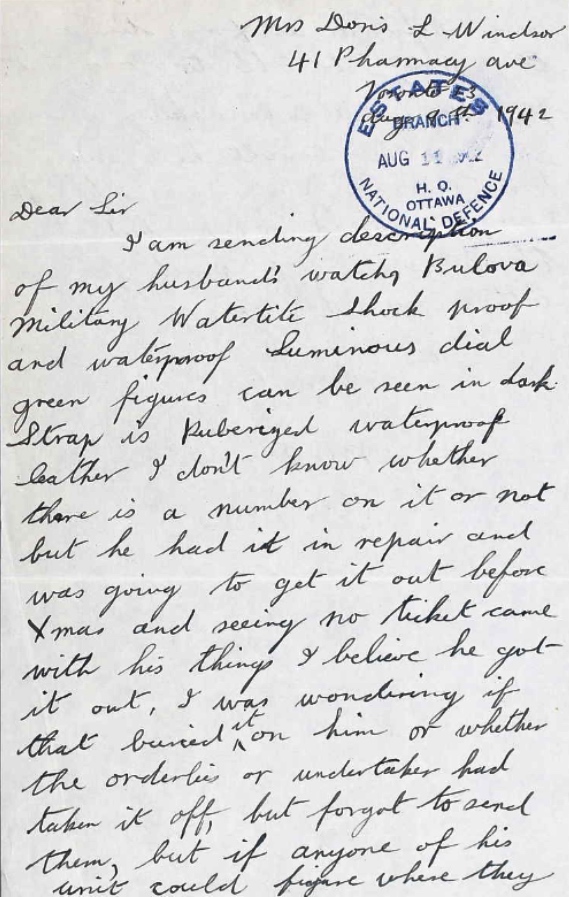 Mrs Doris L Windsor
41 Pharmacy ave
Toronto 13
Aug 9th 1942
ESTATES
BRANCH
AUG 11 1942
H. Q.
OTTAWA
NATIONAL DEFENCE
Dear Sir
I am sending description
of my husband's watch, Bulova
Military Watertite Shock proof
and waterproof Luminous dial
green figures can be seen in dark
Strap is Ruberized waterproof
leather I don't know whether
there is a number on it or not
but he had it in repair and
was going to get it out before
Xmas and seeing no ticket came
with his things I believe he got
it out, I was wondering if
that buried it on him or whether
the orderlies or undertaker had
taken it off, but forgot to send
them, but if anyone of his
unit could figure where they